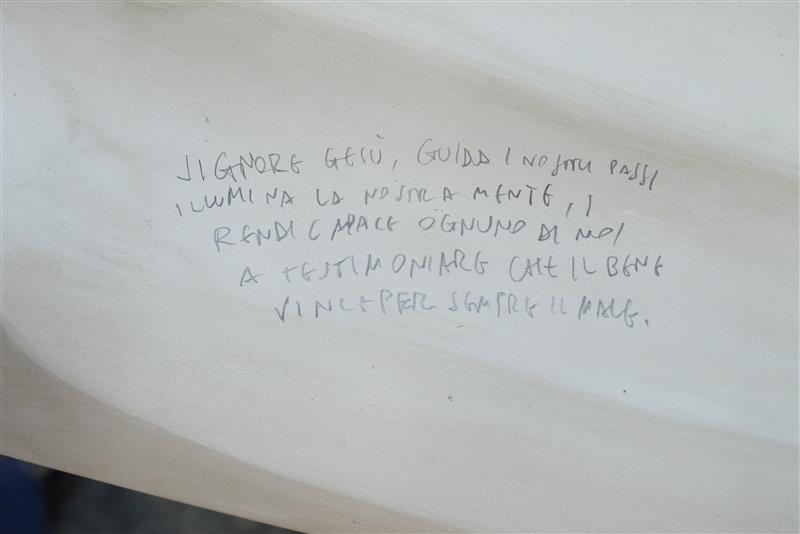 SIGNORE GESÙ, GUIDA I NOSTRI PASSI
ILLUMINA LA NOSTRA MENTE,
RENDI CAPACE OGNUNO DI NOI
A TESTIMONIARE CHE IL BENE
VINCE PER SEMPRE IL MALE.